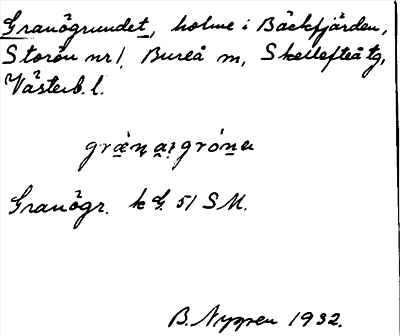 Granögrundet, holme i Bäckfjärden,
Storön nr 1, Bureå sn, Skellefteå tg,
Västerb. l.
Granögr. k G. 51 SM.
B. Nyppen 1932.